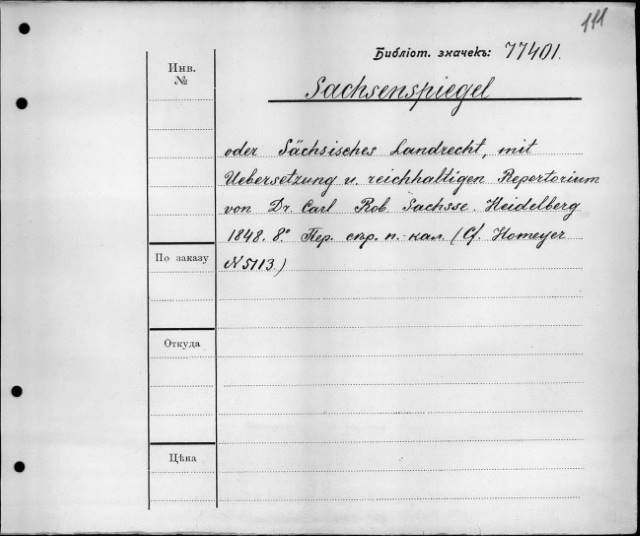 111
Библіот. значекъ: 77401.
Инв.
№
Sachsenspiegel
oder Sächsisches Landrecht, mit
Uebersetzung u. reichhaltigen Repertorium
von Dr. Carl Rob. Sachsse. Heidelberg
1848. 8.° Пер. стр. п.-кал. (Cf. Homeyer
По заказу
N 5113.)
Откуда
Цѣна